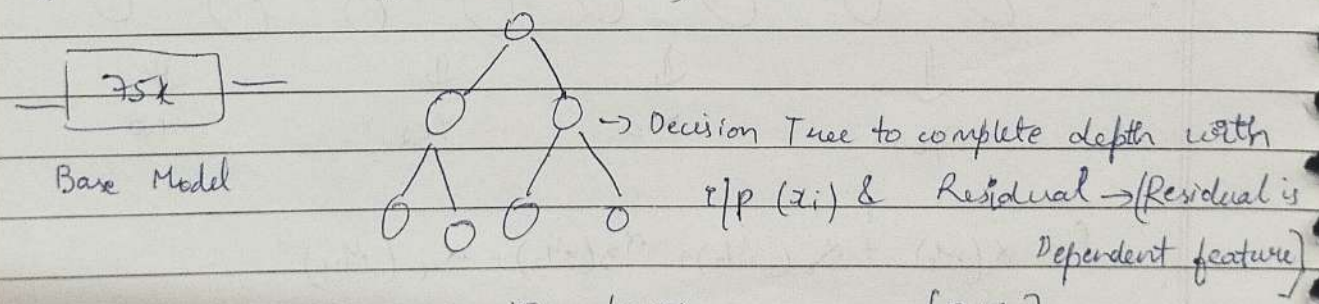 75k
Base Model
→ Decision Tree to complete depth with
i/p (xi) & Residual → (Residual is
Dependent feature)